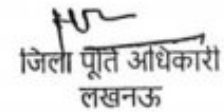 जिला पूर्ति अधिकारी
लखनऊ